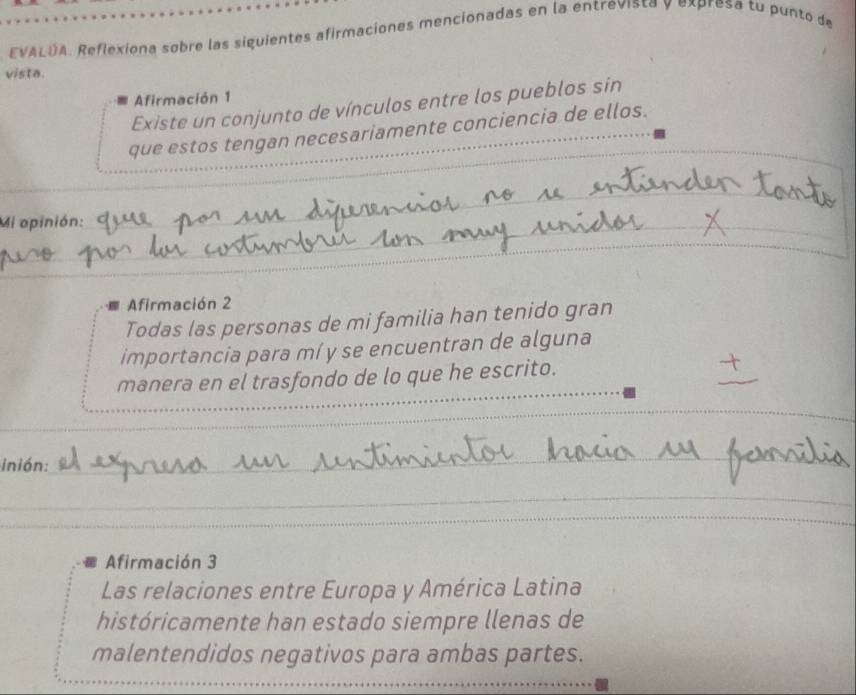 EVALÚA. Reflexiona sobre las siguientes afirmaciones mencionadas en la entrevista y expresa tu punto de
vista.
Afirmación 1
Existe un conjunto de vínculos entre los pueblos sin
que estos tengan necesariamente conciencia de ellos.
Mi opinión: que por sus diferencias no se entienden tanto
pero por las costumbres son muy unidos X
Afirmación 2
Todas las personas de mi familia han tenido gran
importancia para mí y se encuentran de alguna
manera en el trasfondo de lo que he escrito.
±
inión: el expresa sus sentimientos hacia su familia
Afirmación 3
Las relaciones entre Europa y América Latina
históricamente han estado siempre llenas de
malentendidos negativos para ambas partes.